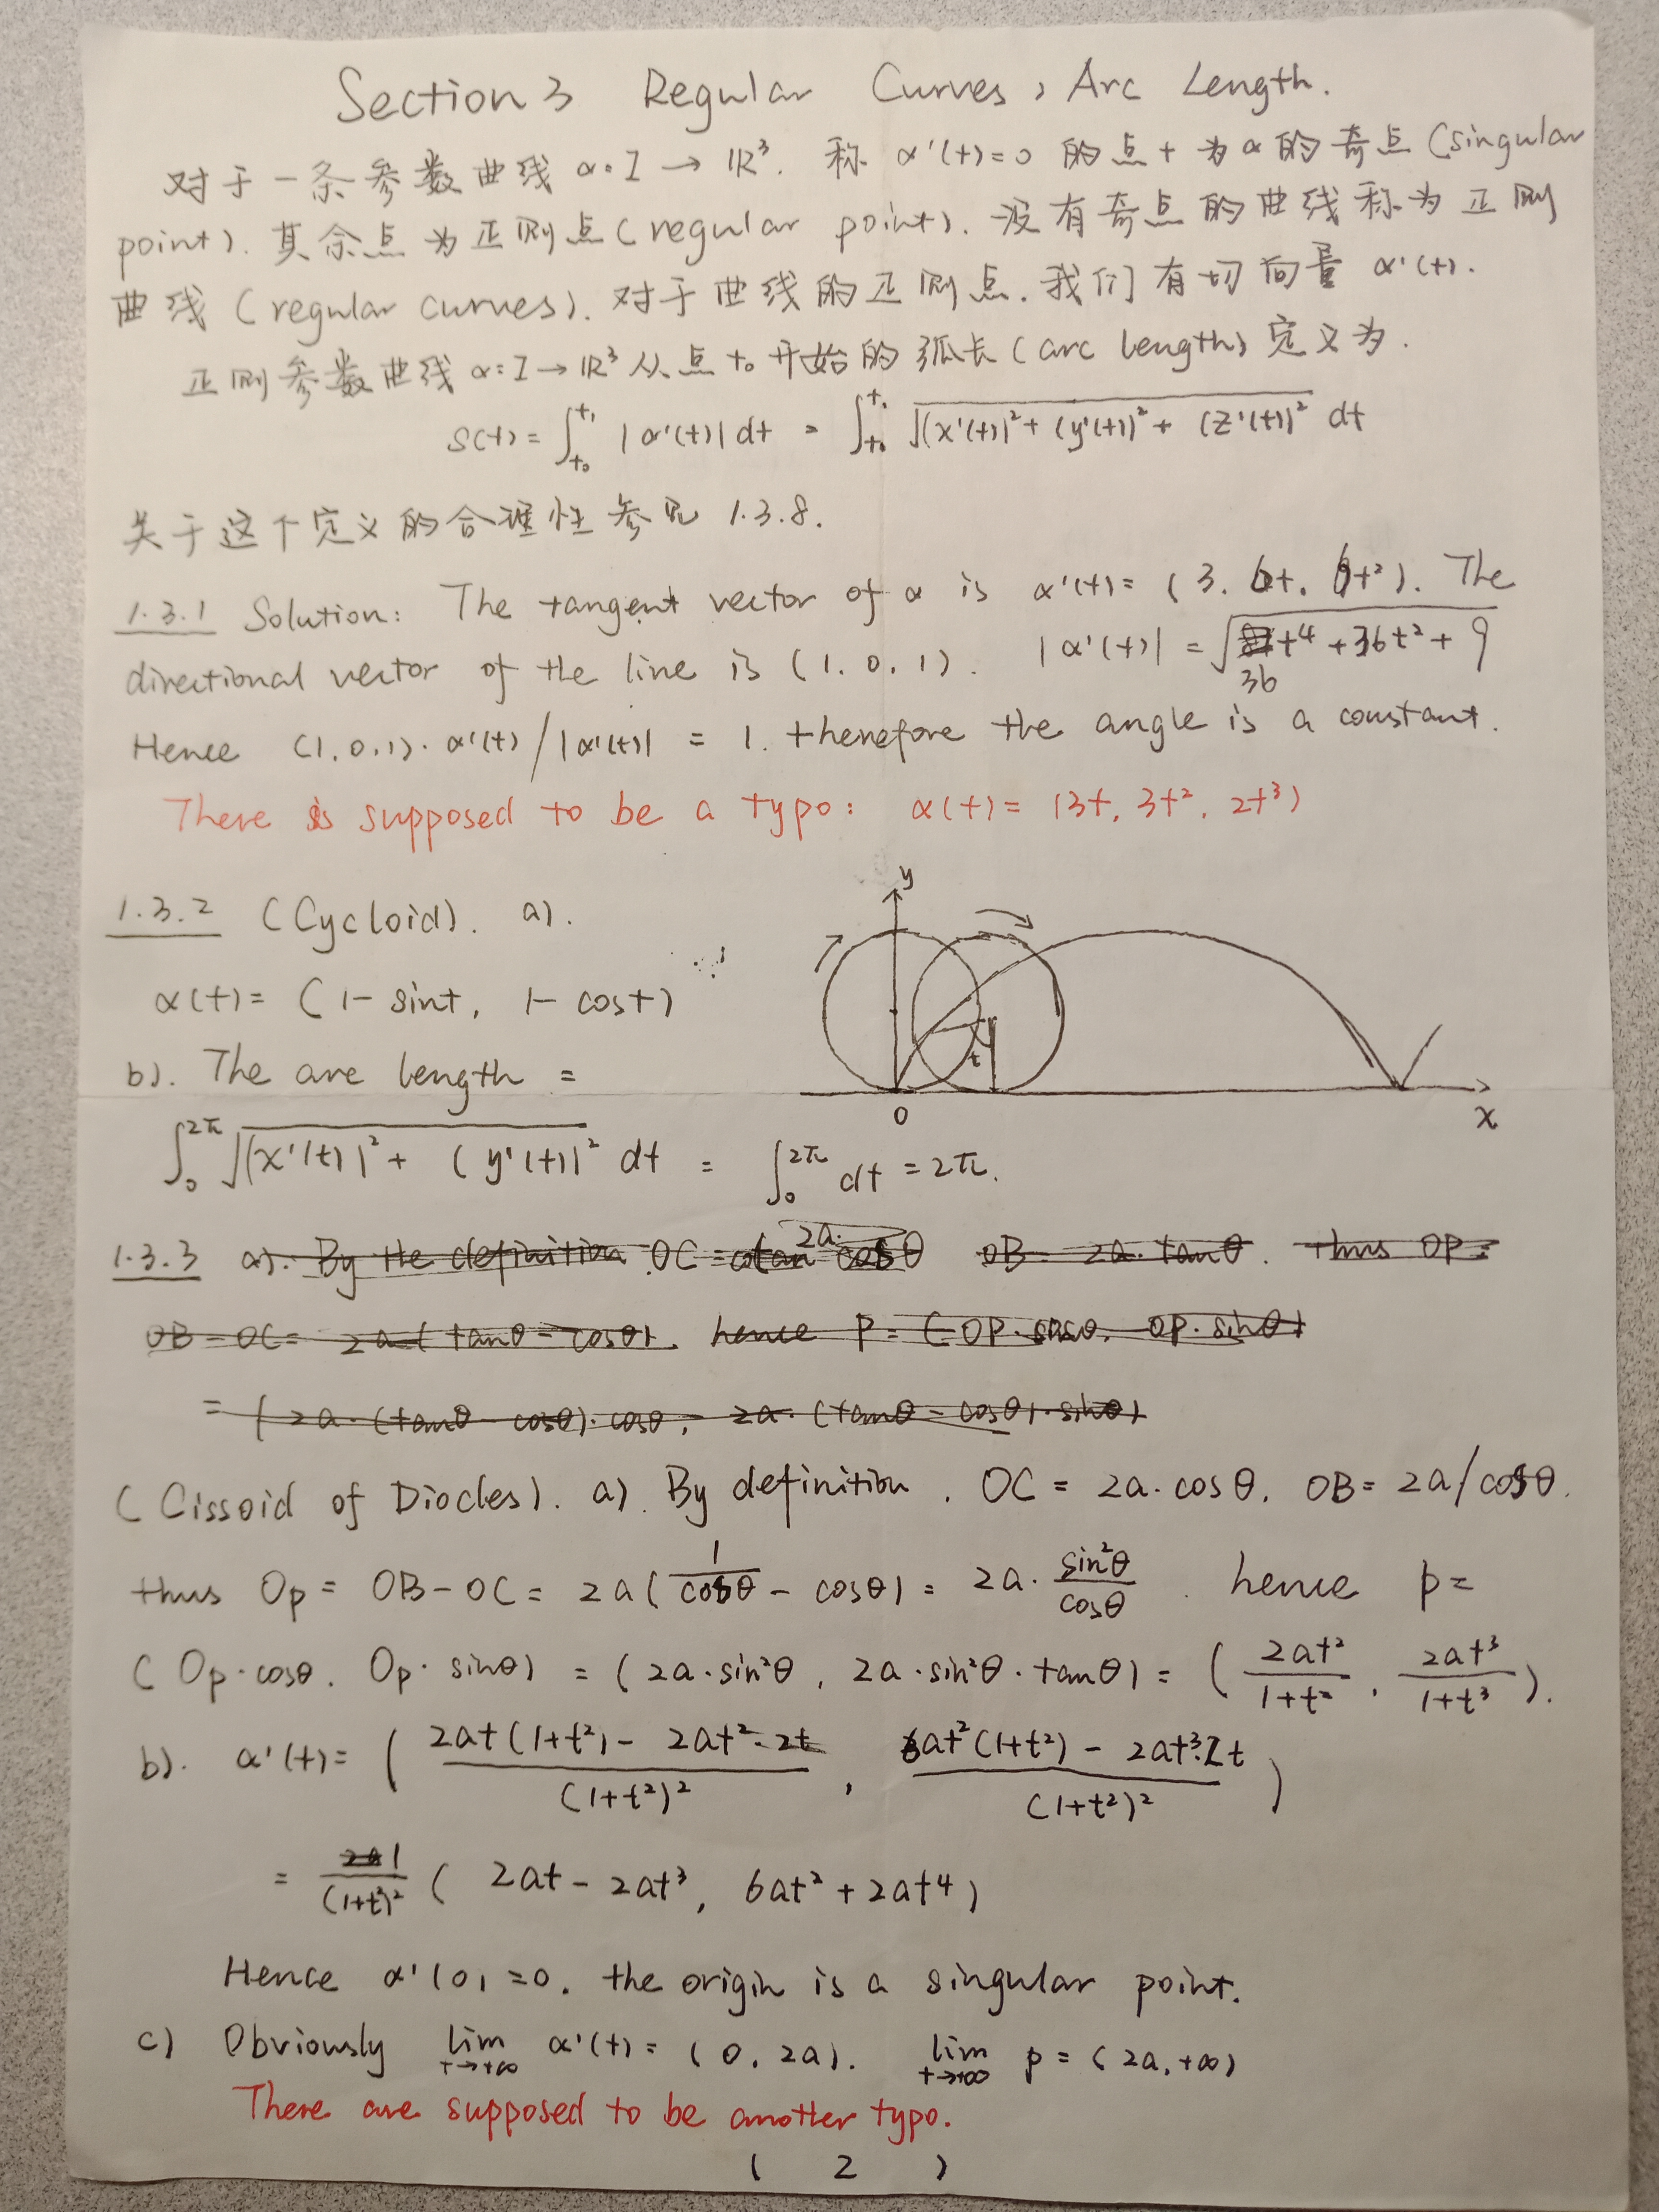 Section 3 Regular Curves, Arc Length.
对于一条参数曲线 α: I → ℝ³. 称 α'(t)=0 的点 t 为α的奇点 (singular
point). 其余点为正则点 (regular point). 没有奇点的曲线称为正则
曲线 (regular curves). 对于曲线的正则点. 我们有切向量 α'(t).
正则参数曲线 α: I → ℝ³ 从点 t₀ 开始的弧长 (arc length) 定义为.
s(t) = ∫_{t₀}^{t₁} |α'(t)| dt = ∫_{t₀}^{t₁} √((x'(t))² + (y'(t))² + (z'(t))²) dt
关于这个定义的合理性参见 1.3.8.
1.3.1 Solution: The tangent vector of α is α'(t) = (3. 6t. 6t²). The
directional vector of the line is (1. 0. 1). |α'(t)| = √(36t⁴ + 36t² + 9)
Hence (1. 0. 1)·α'(t)/|α'(t)| = 1. therefore the angle is a constant.
There is supposed to be a typo: α(t) = (3t. 3t². 2t³)
1.3.2 (Cycloid). a).
α(t) = (1 - sint, 1 - cost)
b). The arc length =
∫₀^{2π} √((x'(t))² + (y'(t))²) dt = ∫₀^{2π} dt = 2π.
y
t
0
x
1.3.3 a). By the definition OC = 2a. cosθ OB = 2a. tanθ. thus OP =
OB - OC = 2a (tanθ - cosθ). hence P = (OP·cosθ. OP·sinθ)
= (2a·(tanθ - cosθ)·cosθ, 2a·(tanθ - cosθ)·sinθ)
(Cissoid of Diocles). a). By definition. OC = 2a·cosθ. OB = 2a/cosθ.
thus Op = OB - OC = 2a(1/cosθ - cosθ) = 2a· sin²θ/cosθ. hence p =
(Op·cosθ. Op·sinθ) = (2a·sin²θ, 2a·sin²θ·tanθ) = (2at²/(1+t²), 2at³/(1+t³)).
b). α'(t) = ((2at(1+t²) - 2at²·2t)/(1+t²)², (6at²(1+t²) - 2at³·2t)/(1+t²)²)
= 1/(1+t²)² (2at - 2at³, 6at² + 2at⁴)
Hence α'(0) = 0. the origin is a singular point.
c) Obviously lim_{t→+∞} α'(t) = (0. 2a). lim_{t→+∞} p = (2a, +∞)
There are supposed to be another typo.
( 2 )